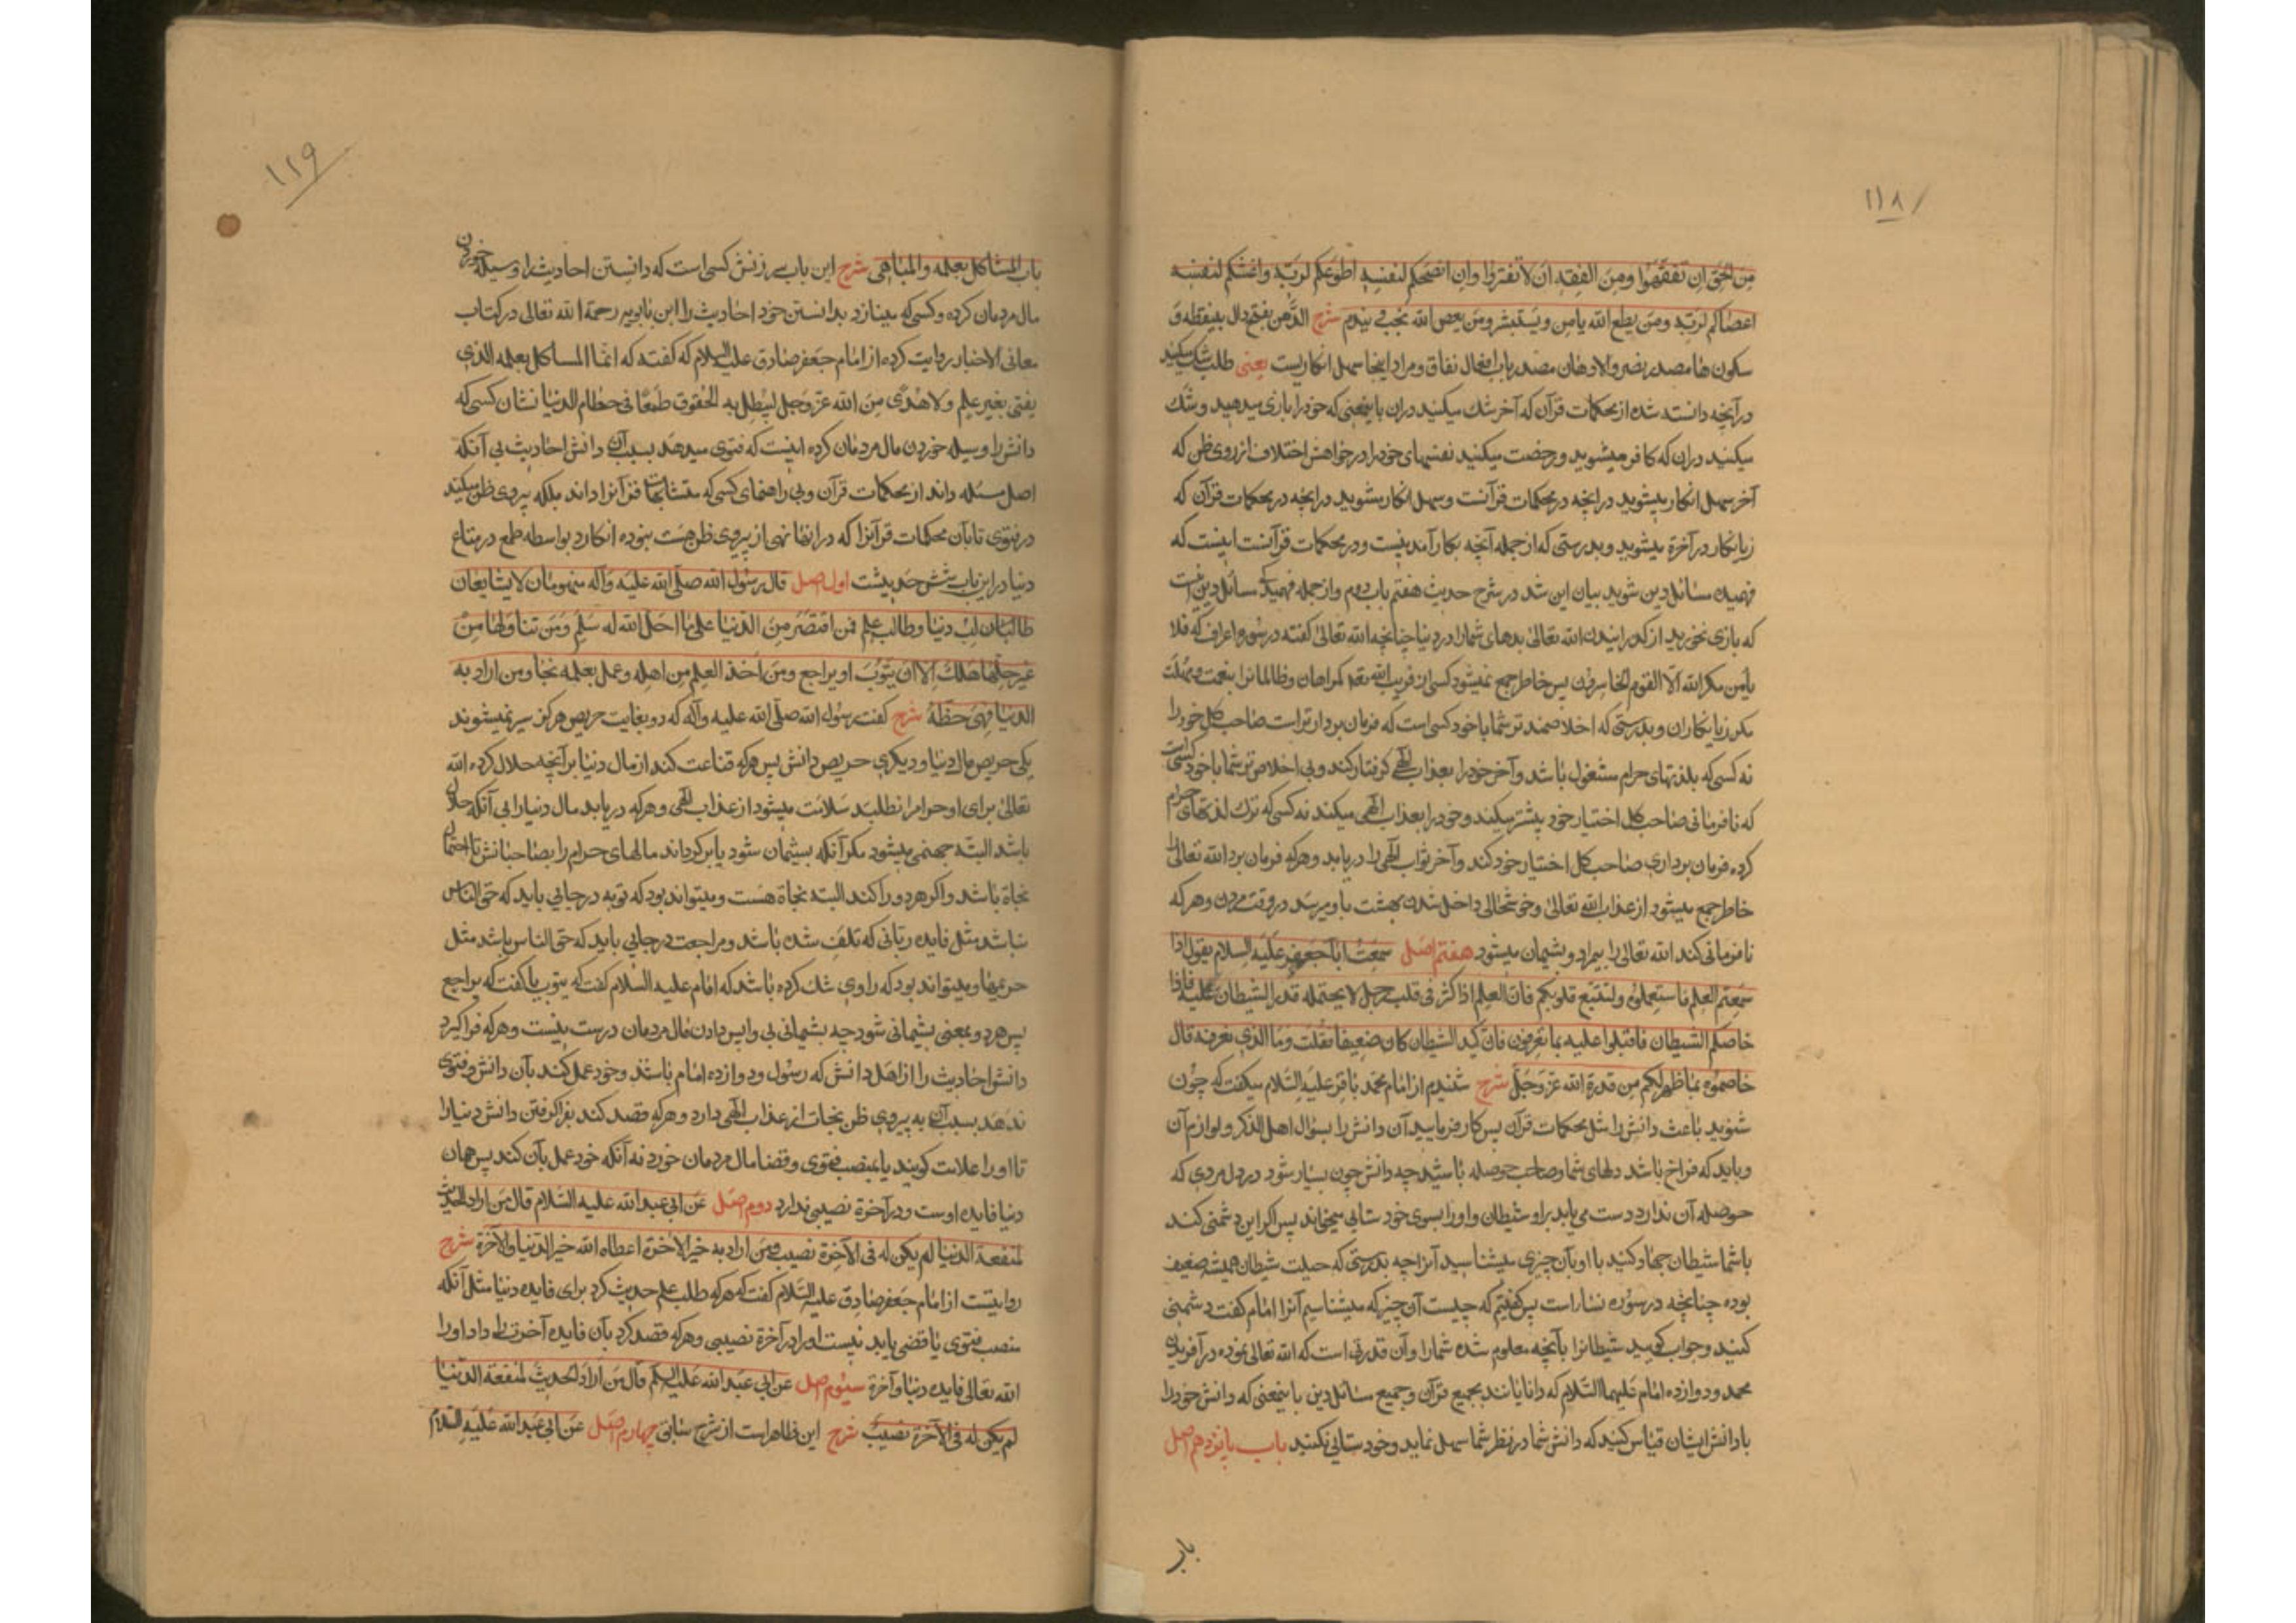 ۱۱۸
من الحق ان تفقهوا ومن الفقه ان لا تغتروا وان انصحكم لنفسه اطوعكم لربه واغشكم لنفسه
اعصاكم لربه ومن يطع الله يامن ويستبشر ومن يعص الله يخب ويندم شرح الدهن بفتح دال بينقطه و
سكون ها مصدر بضر والادهان مصدر باب افعال نفاق ومراد اينجا سهل انكاريست يعنى طلب شك ميكنيد
در آنچه دانسته شده از محكمات قرآن كه آخر شك ميكنيد دران باينمعنى كه خود را بازى ميدهيد وشك
ميكنيد دران كه كافر ميشويد ورخصت ميكنيد نفسهاى خود را در خواهش اختلاف از روى ظن كه
آخر سهل انكار ميشويد در آنچه در محكمات قرآنست وسهل انكار مشويد در آنچه در محكمات قرآن كه
زيانكار در آخرة ميشويد وبدرستى كه از جمله آنچه بكار آمدنيست ودر محكمات قرآنست اينست كه
فهميده مسائل دين شويد بيان اين شد در شرح حديث هفتم باب دوم واز جمله فهميدگى مسائل دين اينست
كه بازى نخوريد از گذرانيدن الله تعالى بدهاى شما را در دنيا چنانچه الله تعالى گفته در سوره اعراف كه فلا
يأمن مكر الله الا القوم الخاسرون پس خاطر جمع نميشود كسى از فريب الله تعه گمراهان وظالمانرا بنعمت ومهلت
مگر زيانكاران وبدرستى كه اخلاصمند تر شما با خود كسى است كه فرمان بردار تر است صاحب كل خود را
نه كسى كه بلذتهاى حرام مشغول باشد وآخر خود را بعذاب الهى گرفتار كند وبى اخلاص تر شما با خود كسى است
كه نافرمانى صاحب كل اختيار خود بيشتر ميكند وخود را بعذاب الهى ميكند نه كسى كه ترك لذتهاى حرام
كرده فرمان بردارى صاحب كل اختيار خود كند وآخر ثواب الهى را دريابد وهر كه فرمان برد الله تعالى را
خاطر جمع ميشود از عذاب الله تعالى وخوشحالى داخل شدن بهشت باو ميرسد در وقت مردن وهر كه
نافرمانى كند الله تعالى را بيمراد وپشيمان ميشود هفتم اصل سمعت ابا جعفر عليه السلام يقول اذا
سمعتم العلم فاستعملوه ولتتسع قلوبكم فان العلم اذا كثر فى قلب رجل لا يحتمله قدر الشيطان عليه فاذا
خاصمكم الشيطان فاقبلوا عليه بما تعرفون فان كيد الشيطان كان ضعيفا فقلت وما الذى نعرفه قال
خاصموه بما ظهر لكم من قدرة الله عز وجل شرح شنيدم از امام محمد باقر عليه السلام ميگفت كه چون
شنويد باعث دانش را مثل محكمات قرآن پس كار فرماييد آن دانش را بسؤال اهل الذكر ولوازم آن
وبايد كه فراخ باشد دلهاى شما وصاحب حوصله باشيد چه دانش چون بسيار شود در دل مردى كه
حوصله آن ندارد دست مى يابد براو شيطان واو را بسوى خود ستايى ميخواند پس اگر اين دشمنى كند
با شما شيطان جهاد كنيد با او بآن چيزى ميشناسيد آنرا چه بدرستى كه حيلت شيطان هميشه ضعيف
بوده چنانچه در سوره نساء است پس گفتيم كه چيست آن چيز كه ميشناسيم آنرا امام گفت دشمنى
كنيد وجواب گوييد شيطانرا بآنچه معلوم شده شما را وآن قدرتى است كه الله تعالى نموده در آفريدن
محمد ودوازده امام عليهم السلام كه دانايانند بجميع قرآن وجميع مسائل دين باينمعنى كه دانش خود را
با دانش ايشان قياس كنيد كه دانش شما در نظر شما سهل نمايد وخود ستايى نكنيد باب پانزدهم اصل
باب
۱۱۹
باب المستاكل بعلمه والمباهى شرح اين باب سرزنش كسى است كه دانستن احاديث را وسيله خوردن
مال مردمان كرده وكسى كه مينازد بدانستن خود احاديث را ابن بابويه رحمة الله تعالى در كتاب
معانى الاخبار روايت كرده از امام جعفر صادق عليه السلام كه گفته كه انما المستاكل بعلمه الذى
يفتى بغير علم ولا هدى من الله عز وجل ليبطل به الحقوق طمعا فى حطام الدنيا نشان كسى كه
دانش را وسيله خوردن مال مردمان كرده اينست كه فتوى ميدهد بسبب آن دانش احاديث بى آنكه
اصل مسئله داند از محكمات قرآن وبى راهنماى كسى كه متشابهات قرآنرا داند بلكه پيروى ظن ميكند
در فتوى تا بآن محكمات قرآنرا كه در آنها نهى از پيروى ظن هست نبوده انگارد بواسطه طمع در متاع
دنيا در اين باب شش حديثست اول اصل قال رسول الله صلى الله عليه وآله منهومان لا يشبعان
طالبان طالب دنيا وطالب علم فمن اقتصر من الدنيا على ما احل الله له سلم ومن تناولها من
غير حلها هلك الا ان يتوب او يراجع ومن اخذ العلم من اهله وعمل بعلمه نجا ومن اراد به
الدنيا فهى حظه شرح گفت رسول الله صلى الله عليه وآله كه دو بغايت حريص هرگز سير نميشوند
يكى حريص مال دنيا وديگرى حريص دانش پس هر كه قناعت كند از مال دنيا بر آنچه حلال كرده الله
تعالى براى او حرام را نطلبد سلامت ميشود از عذاب الهى وهر كه دريابد مال دنيا را بى آنكه حلال
باشد البته جهنمى ميشود مگر آنكه پشيمان شود يا برگرداند مالهاى حرام را بصاحبانش تا احتمال
نجاة باشد واگر هر دو را كند البته نجاة هست وميتواند بود كه توبه در جايى بايد كه حق الناس
نباشد مثل فايده ربائى كه تلف شده باشد ومراجعت در جايى بايد كه حق الناس باشد مثل
وميتواند بود كه راوى شك كرده باشد كه امام عليه السلام گفت كه يتوب يا گفت كه يراجع
پس هر دو بمعنى پشيمانى شود چه پشيمانى بى واپس دادن مال مردمان درست نيست وهر كه فرا گيرد
دانش احاديث را از اهل دانش كه رسول ودوازده امام باشند وخود عمل كند بآن دانش وفتوى
ندهد بسبب آن به پيروى ظن نجات از عذاب الهى دارد وهر كه قصد كند بفرا گرفتن دانش دنيا را
تا او را علامت گويند يا بمنصب فتوى وقضا مال مردمان خورد نه آنكه خود عمل بآن كند پس همان
دنيا فايده اوست ودر آخرة نصيبى ندارد دوم اصل عن ابى عبد الله عليه السلام قال من اراد الحديث
لمنفعة الدنيا لم يكن له فى الآخرة نصيب ومن اراد به خير الآخرة اعطاه الله خير الدنيا والآخرة شرح
روايتست از امام جعفر صادق عليه السلام گفت كه هر كه طلب علم حديث كرد براى فايده دنيا مثل آنكه
منصب فتوى يا قضى يابد نيست او را در آخرة نصيبى وهر كه قصد كرد بآن فايده آخرت را داد او را
الله تعالى فايده دنيا وآخرة سيوم اصل عن ابى عبد الله عليه السلم قال من اراد الحديث لمنفعة الدنيا
لم يكن له فى الآخرة نصيب شرح اين ظاهر است از شرح سابق چهارم اصل عن ابى عبد الله عليه السلام